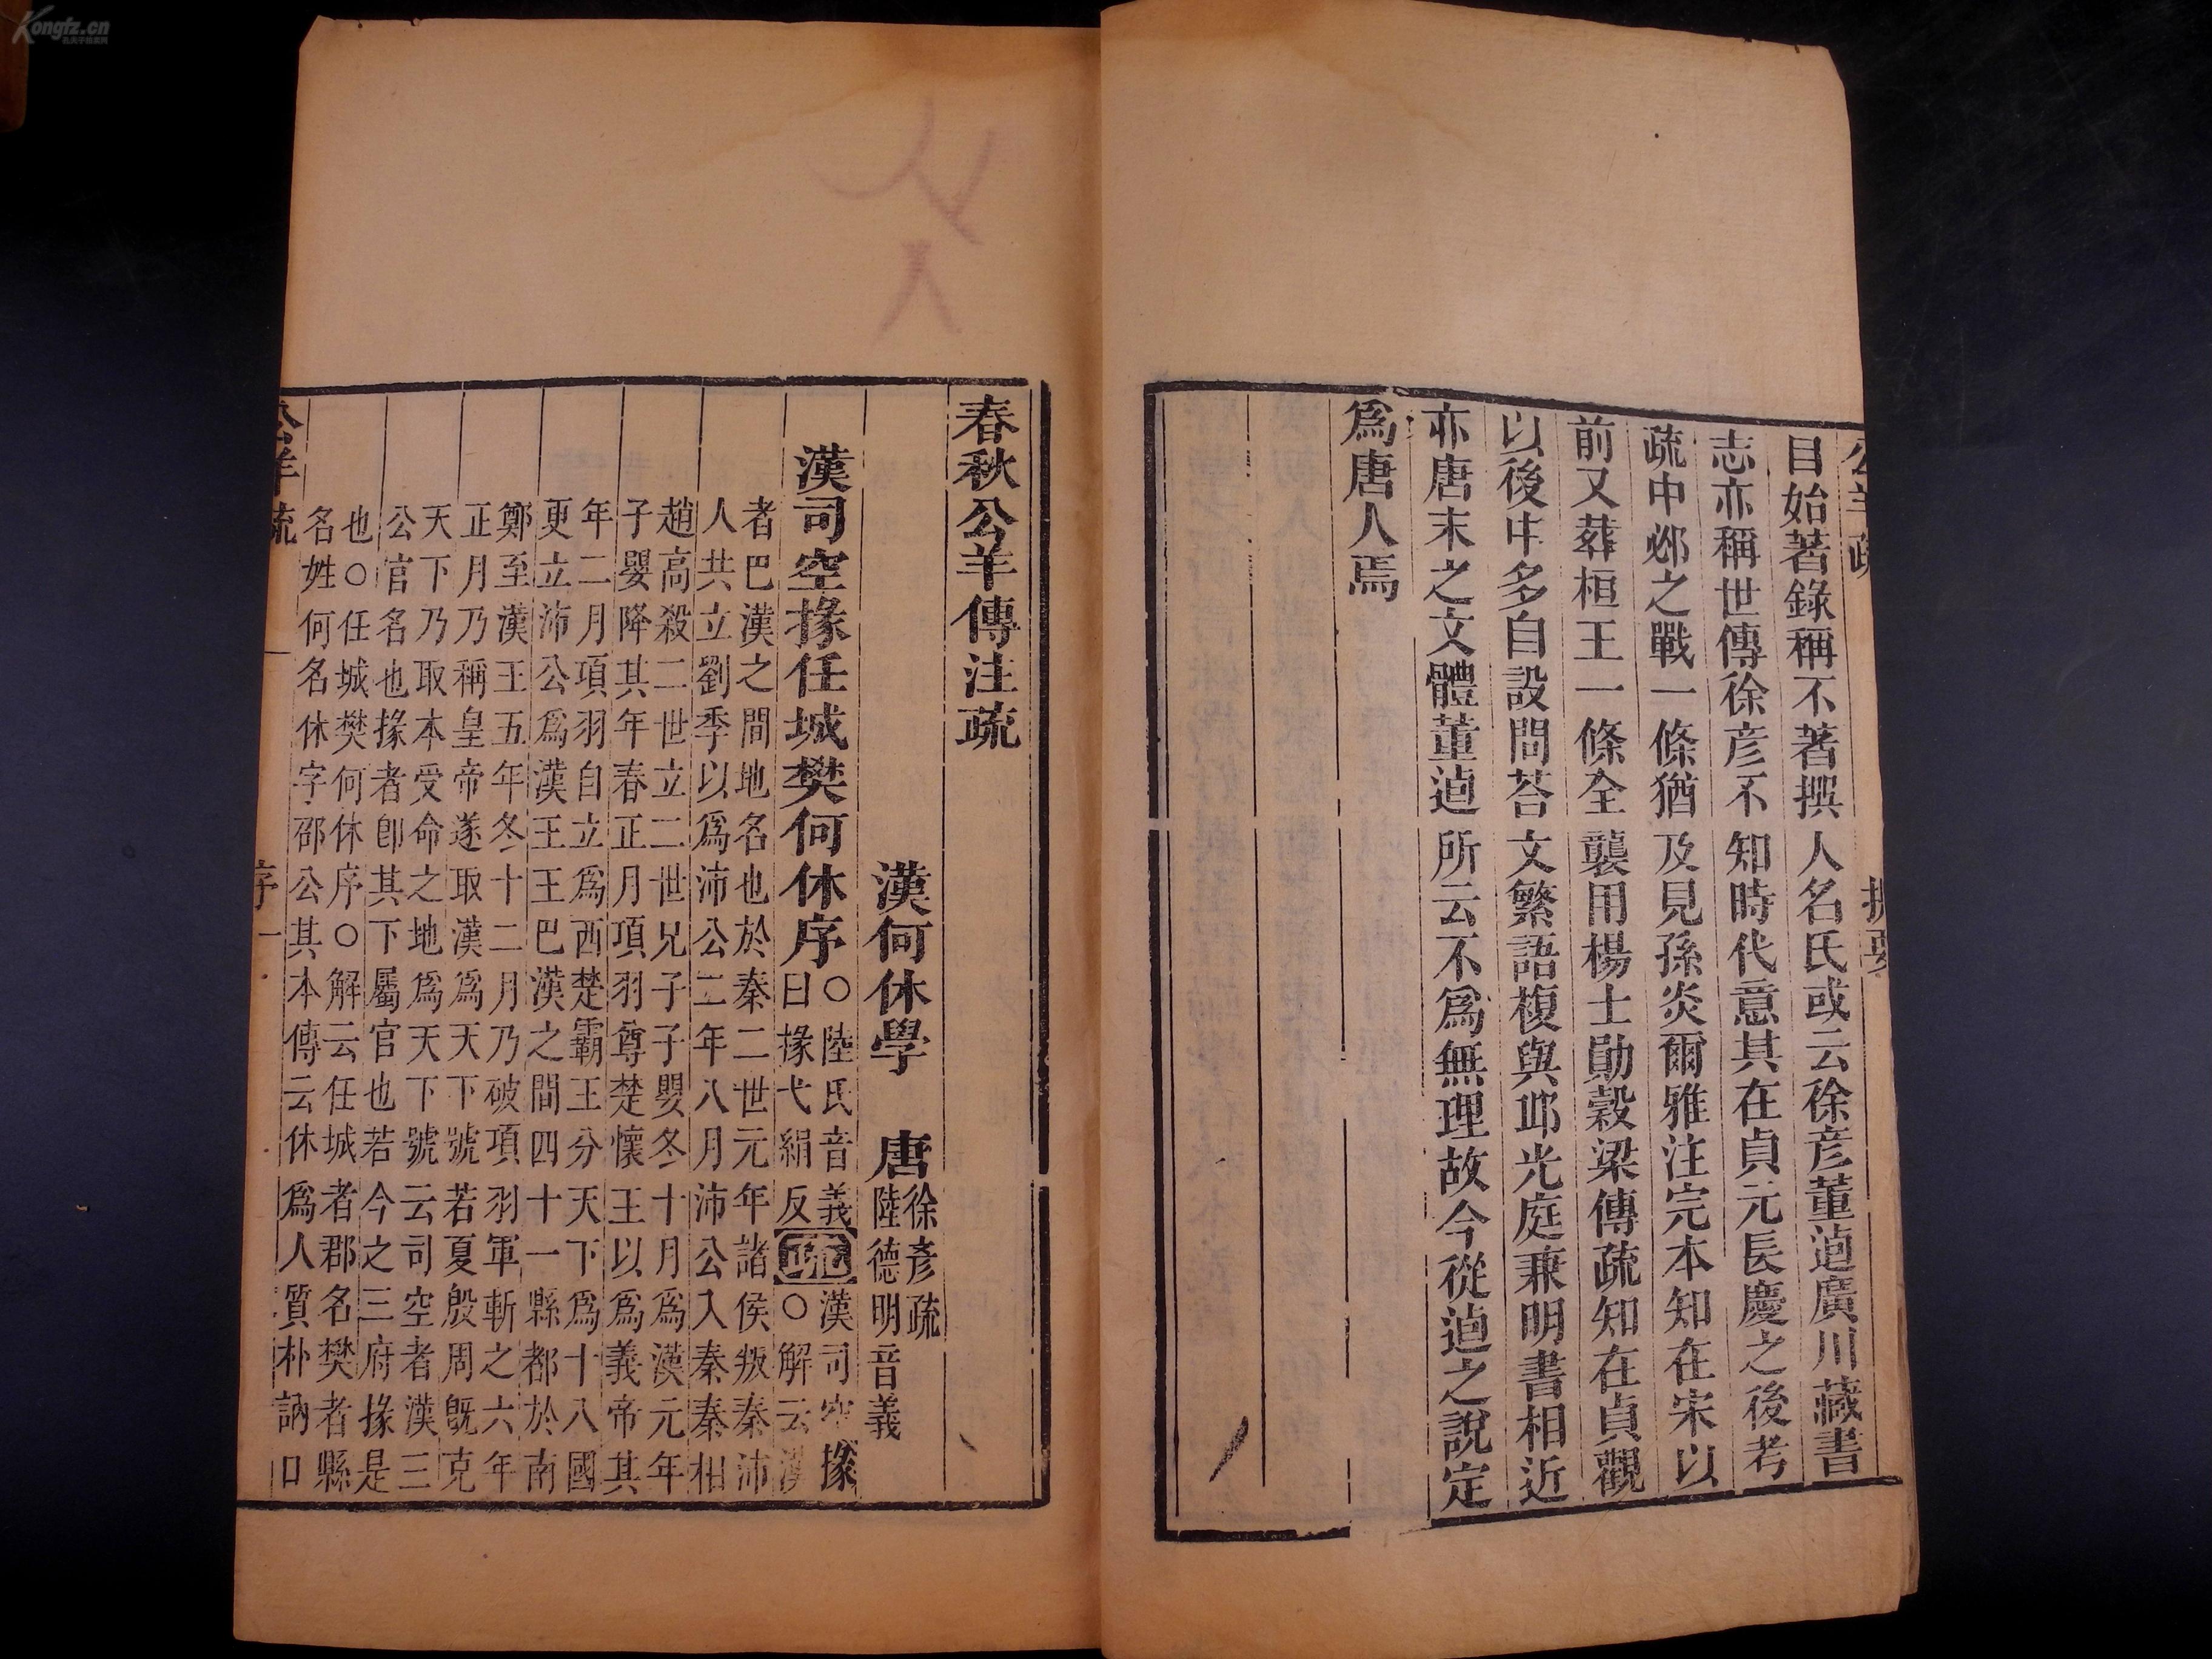 目始著錄稱不著撰人名氏或云徐彦董逌廣川藏書
志亦稱世傳徐彦不知時代意其在貞元長慶之後考
疏中邲之戰一條猶及見孫炎爾雅注完本知在宋以
前又葬桓王一條全襲用楊士勛穀梁傳疏知在貞觀
以後中多自設問荅文繁語複與邱光庭兼明書相近
亦唐末之文體董逌所云不爲無理故今從逌之說定
爲唐人焉
春秋公羊傳注疏
漢何休學 唐
徐彥疏
陸德明音義
漢司空掾任城樊何休序
○陸氏音義
曰掾弋絹反
疏
漢司空掾
○解云漢
者巴漢之間地名也於秦二世元年諸侯叛秦沛
人共立劉季以爲沛公二年八月沛公入秦秦相
趙高殺二世立二世兄子子嬰冬十月爲漢元年
子嬰降其年春正月項羽尊楚懷王以爲義帝其
年二月項羽自立爲西楚霸王分天下爲十八國
更立沛公爲漢王王巴漢之間四十一縣都於南
鄭至漢王五年冬十二月乃破項羽軍斬之六年
正月乃稱皇帝遂取漢爲天下號若夏殷周既克
天下乃取本受命之地爲天下號云司空者漢三
公官名也掾者卽其下屬官也若今之三府掾是
也○任城樊何休序○解云任城者郡名樊者縣
名姓何名休字邵公其本傳云休爲人質朴訥口
公羊疏
序
一
Kongfz.cn